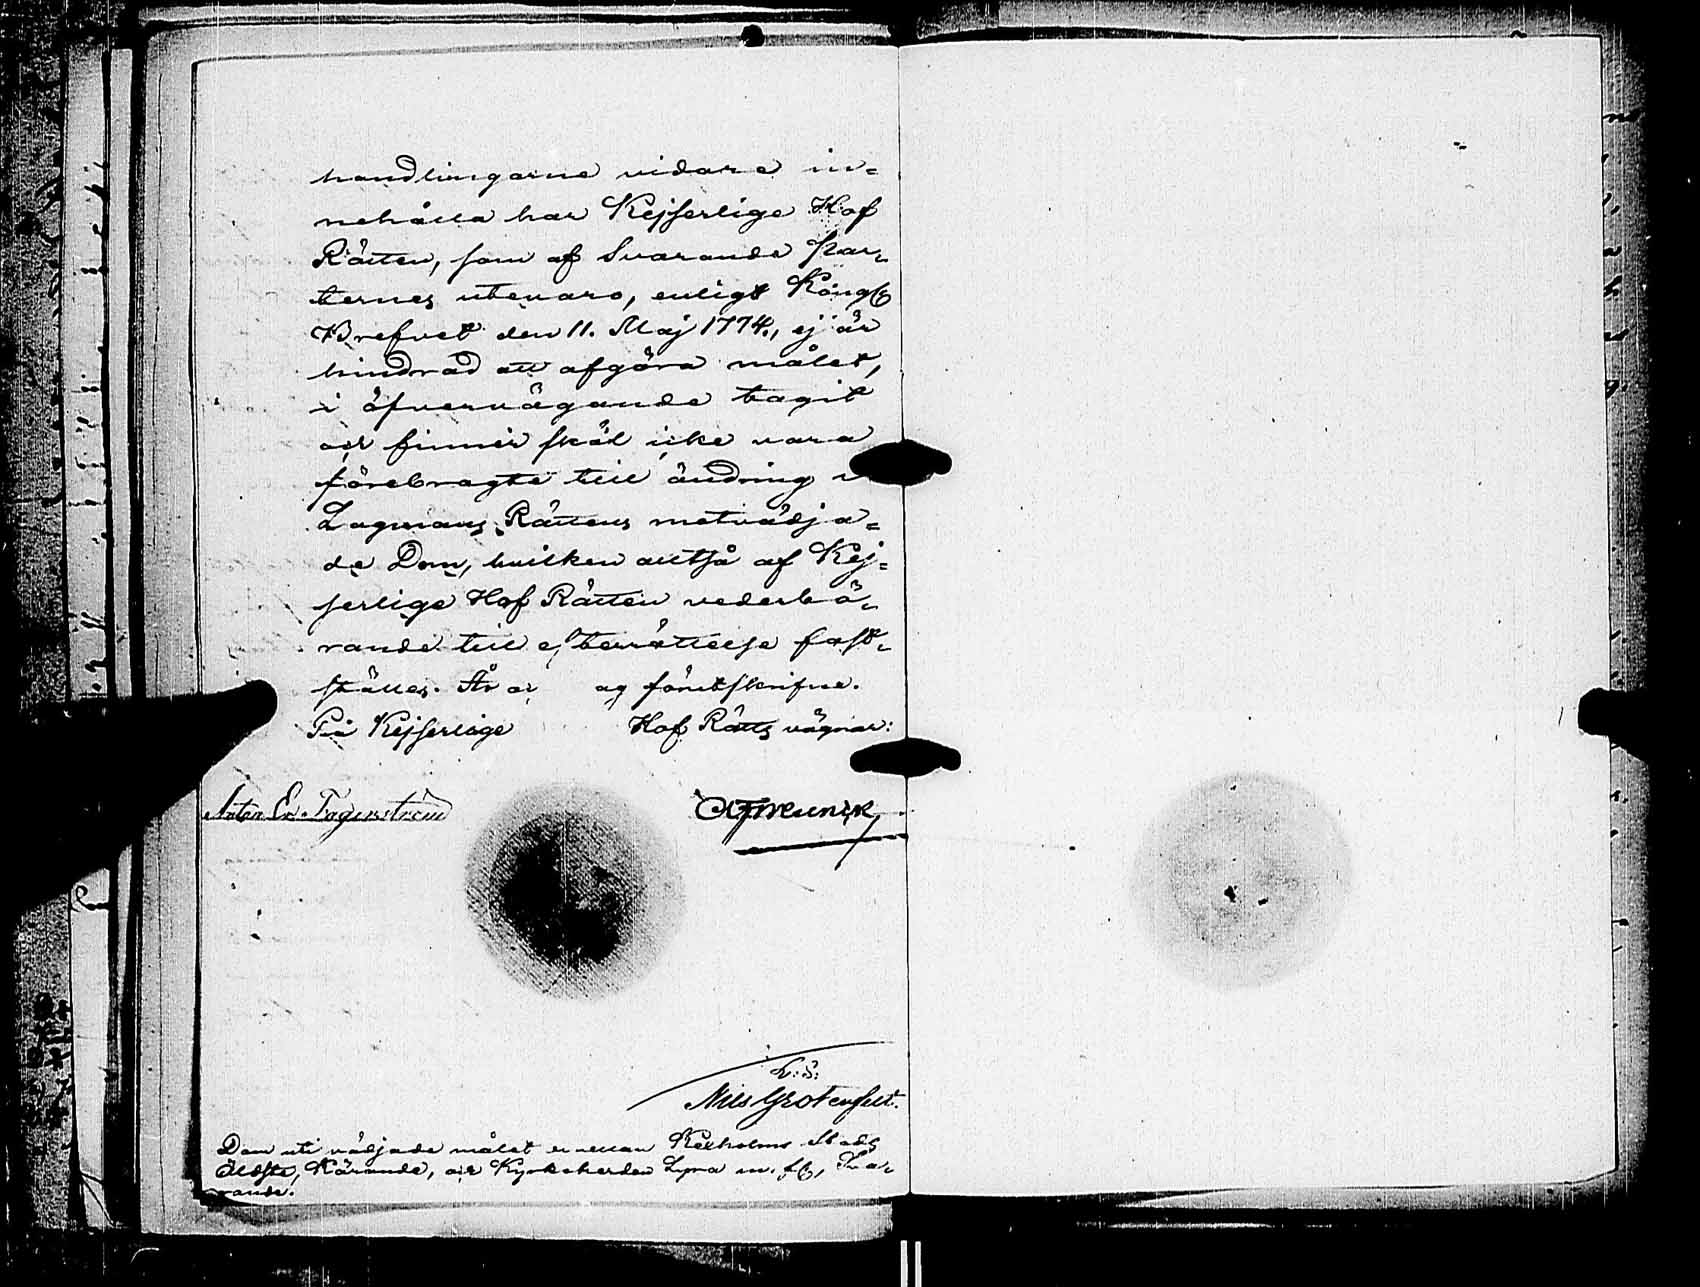 handlingarne vidare in-
nehålla har Kejserlige Hof
Rätten, som af Svarande Par-
ternes utevaro, enligt Kongl
Brefvet den 11. Maj 1774., ej är
hindrad att afgöra målet,
i öfvervägande tagit
och finner skäl icke vara
förebragte till ändring i
Lagmans Rättens motvädja-
de Dom, hvilken alltså af Kej-
serlige Hof Rätten vederbö-
rande till efterrättelse fast-
ställes. År och dag förutskrifne.
På Kejserlige Hof Rätts vägnar:
Anton Er. Fagerström
Nils Grotenfelt.
Dom uti vädjade målet emellan Kexholms Stads
Äldste, Kärande, och Kyrkoherden Lyra m. fl, Sva-
rande.